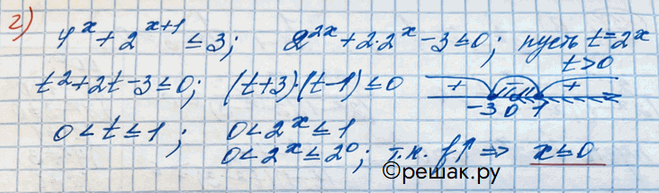 г) 4^x + 2^{x+1} ≤ 3; 2^{2x} + 2·2^x - 3 ≤ 0; пусть t = 2^x
t > 0
t² + 2t - 3 ≤ 0; (t+3)·(t-1) ≤ 0 + - + -3 0 1
0 < t ≤ 1; 0 < 2^x ≤ 1
0 < 2^x ≤ 2^0; т.к. f↑ ⇒ x ≤ 0
©решак.ру